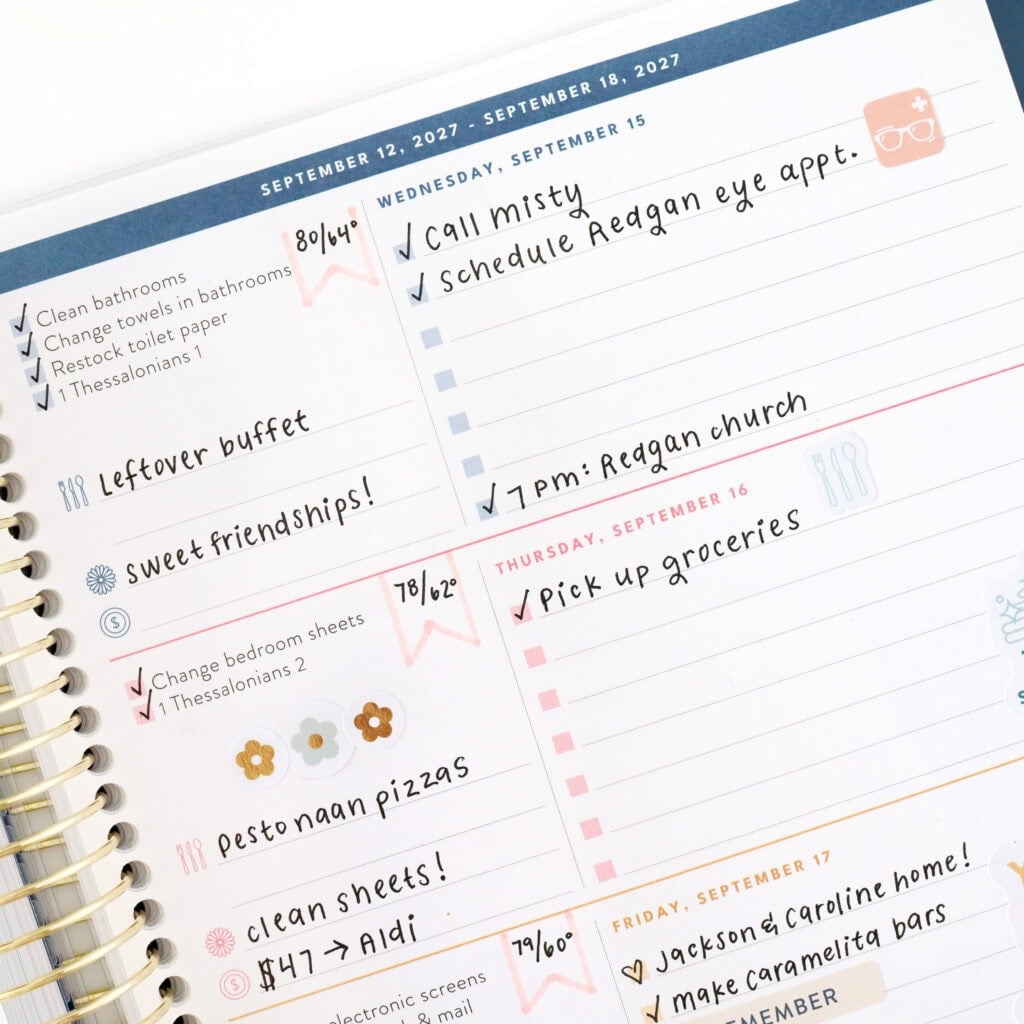 SEPTEMBER 12, 2027 - SEPTEMBER 18, 2027
WEDNESDAY, SEPTEMBER 15
80/64°
Clean bathrooms
Change towels in bathrooms
Restock toilet paper
1 Thessalonians 1
Leftover buffet
sweet friendships!
$
Call misty
Schedule Reagan eye appt.
7 pm: Reagan church
THURSDAY, SEPTEMBER 16
78/62°
Change bedroom sheets
1 Thessalonians 2
pesto naan pizzas
clean sheets!
$
$47 → Aldi
Pick up groceries
FRIDAY, SEPTEMBER 17
79/60°
screens
& mail
Jackson & Caroline home!
make caramelita bars